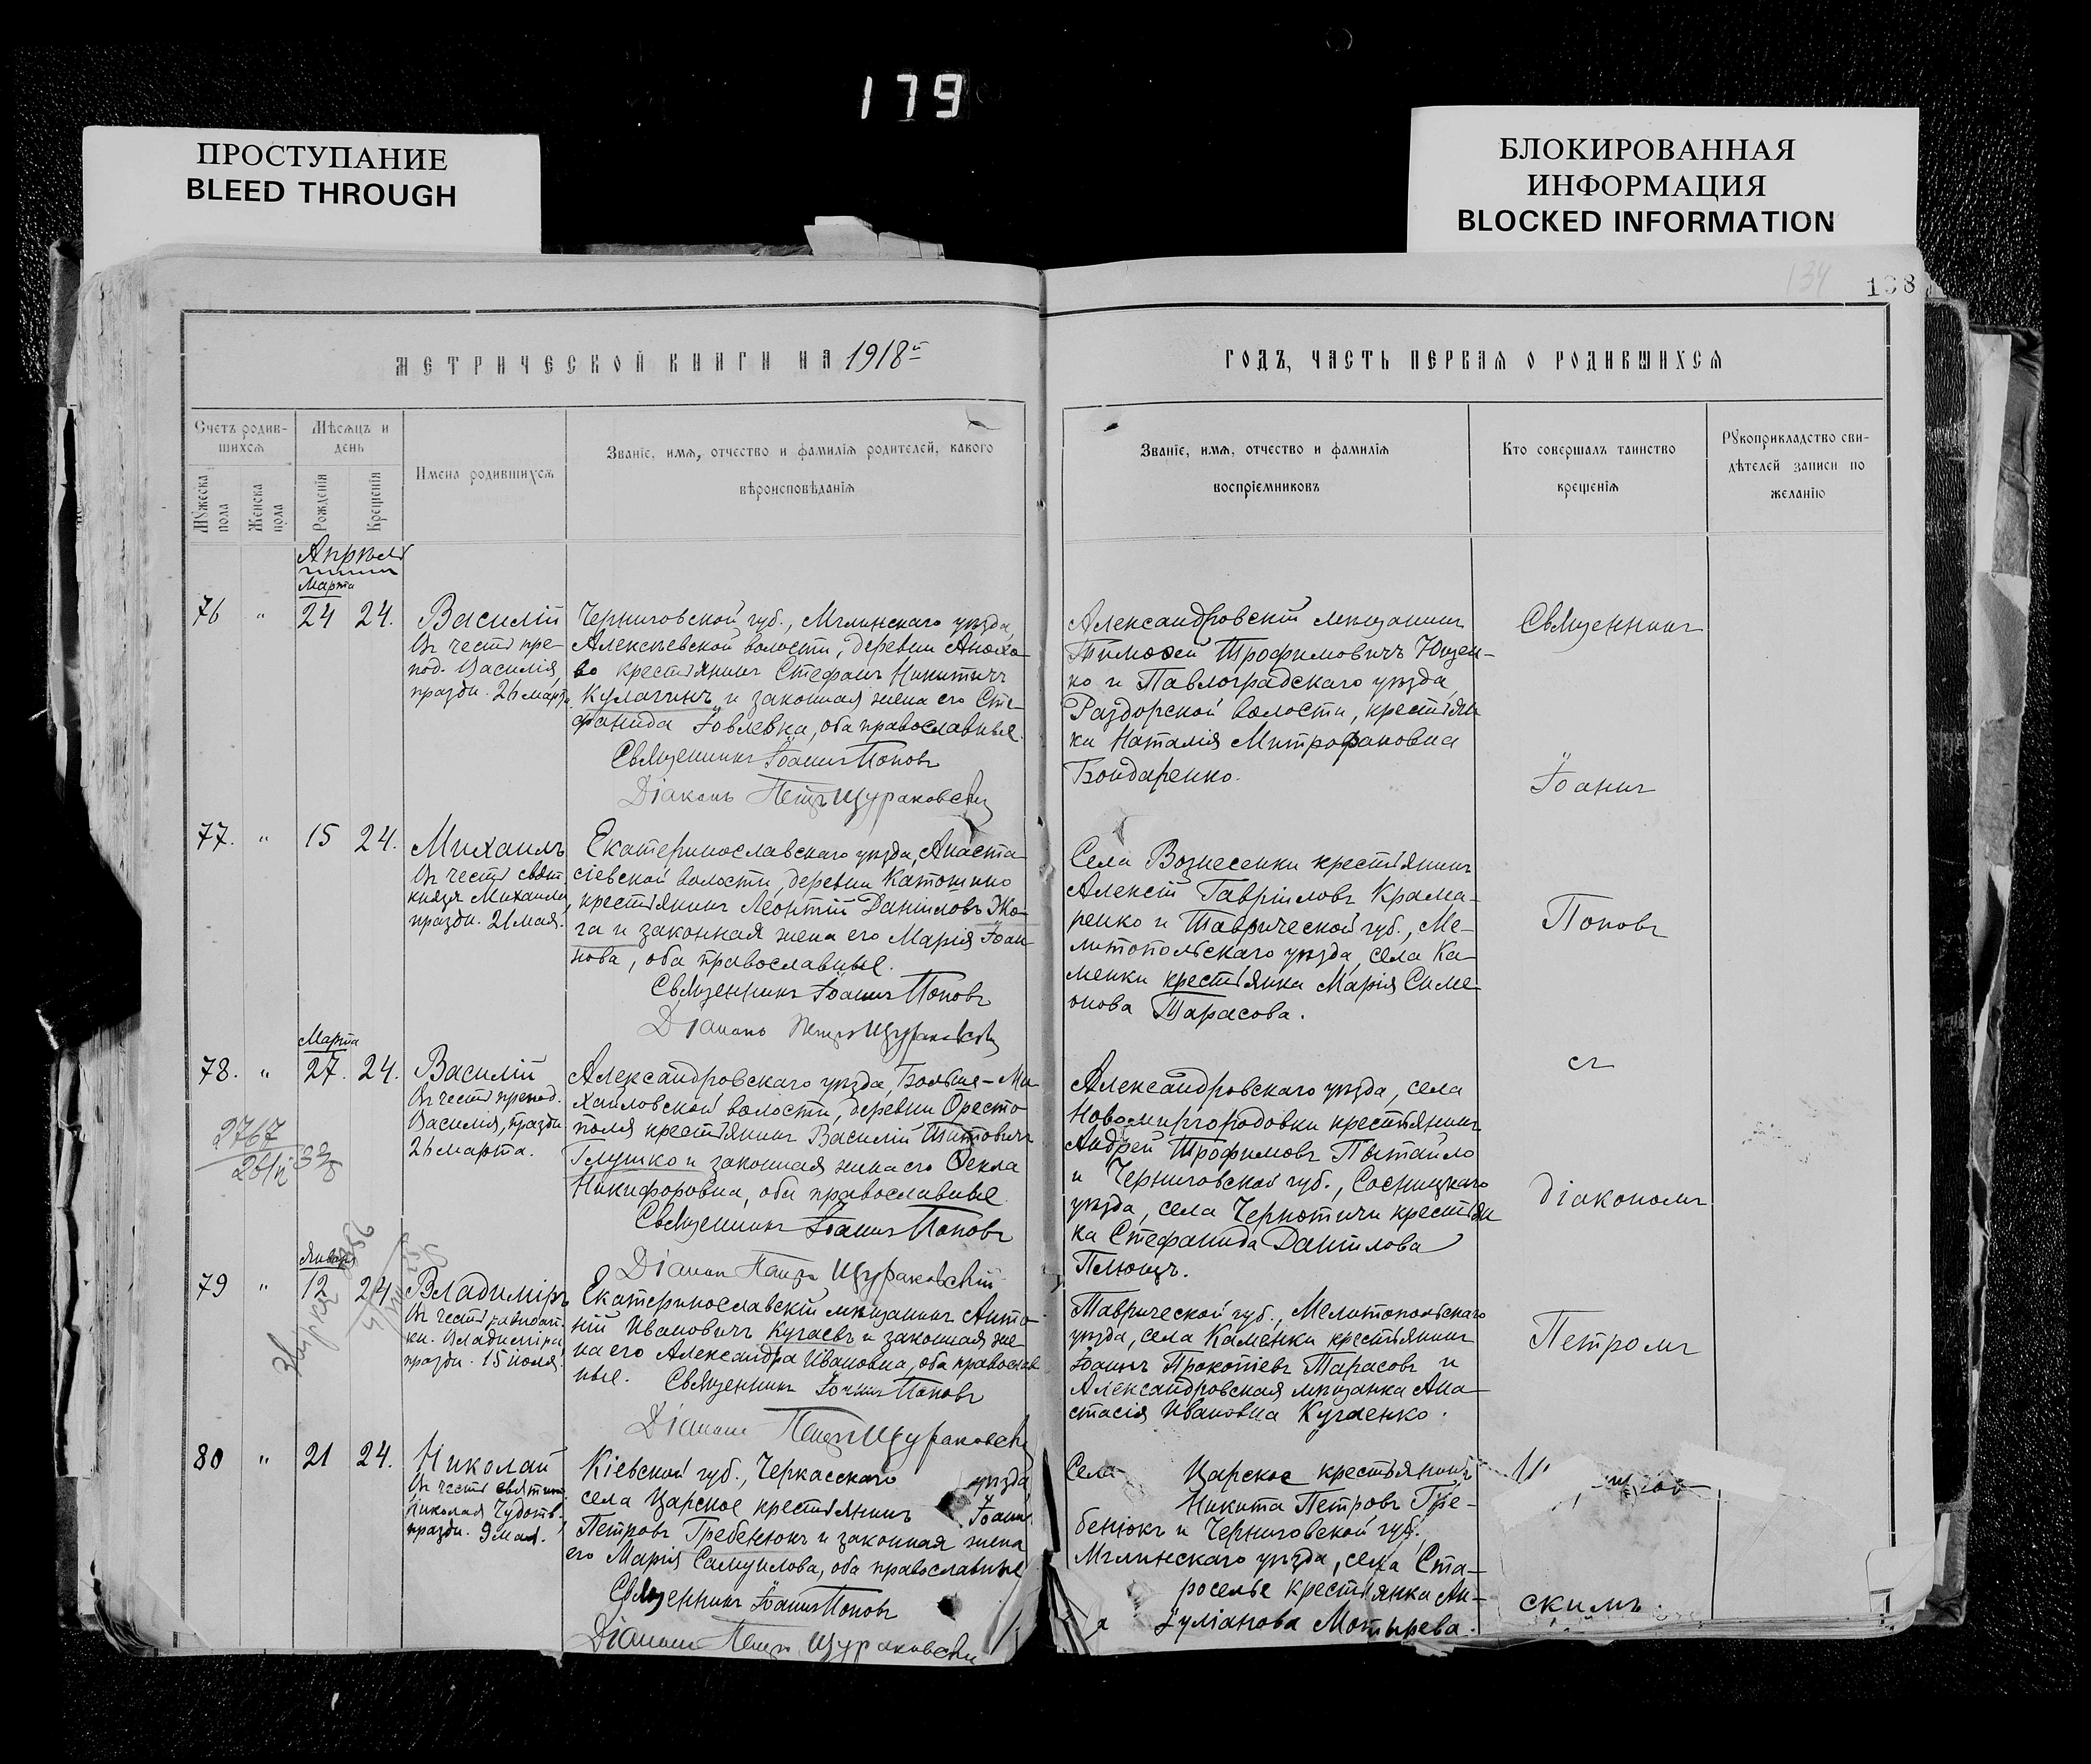 179
ПРОСТУПАНИЕ
BLEED THROUGH
БЛОКИРОВАННАЯ
ИНФОРМАЦИЯ
BLOCKED INFORMATION
134
МЕТРИЧЕСКОЙ КНИГИ НА 1918й
ГОДЪ, ЧАСТЬ ПЕРВАЯ О РОДИВШИХСЯ
Счетъ родив-
шихся
Мужеска
пола
Женска
пола
Мѣсяцъ и
день
Рожденія
Крещенія
Имена родившихся
Званіе, имя, отчество и фамилія родителей, какого
вѣроисповѣданія
Званіе, имя, отчество и фамилія
воспріемниковъ
Кто совершалъ таинство
крещенія
Рукоприкладство сви-
дѣтелей записи по
желанію
Апрѣль
Марта
76 " 24 24.
Василій
Въ честь пре-
под. Василія,
праздн. 26 марта.
Черниговской губ., Мглинскаго уѣзда,
Алексѣевской волости, деревни
во крестьянинъ Стефанъ Никитичъ
Кулагинъ и законная жена его Сте-
фанида Іовлевна, оба православные.
Священникъ Іоаннъ Поповъ
Діаконъ Петръ Щураковскій
Александровскій мѣщанинъ
Тимоѳей Трофимовичъ Ющен-
ко и Павлоградскаго уѣзда,
Раздорской волости, крестьян
ка Наталія Митрофановна
Бондаренко.
Священникъ
Іоаннъ
77. " 15 24.
Михаилъ
Въ честь свят.
князя Михаила,
праздн. 21 мая.
Екатеринославскаго уѣзда, Анаста
сіевской волости, деревни Катюшино
крестьянинъ Леонтій Даніиловъ Жо-
га и законная жена его Марія Іоан
нова, оба православные.
Священникъ Іоаннъ Поповъ
Діаконъ Петръ Щураковскій
Села Вознесенки крестьянинъ
Алексій Гавріиловъ Крама-
ренко и Таврической губ., Ме-
литопольскаго уѣзда, села Ка-
менки крестьянка Марія Симе-
онова Тарасова.
Поповъ
Марта
78. " 27. 24.
Василій
Въ честь препод.
Василія, праздн.
26 марта.
Александровскаго уѣзда, Больше-Ми
хайловской волости, деревни Оресто
поля крестьянинъ Василій Титовичъ
Глушко и законная жена его Ѳекла
Никифоровна, оба православные
Священникъ Іоаннъ Поповъ
Діаконъ Петръ Щураковскій
Александровскаго уѣзда, села
Новомиргородовки крестьянинъ
Андрей Трофимовъ Пытайло
и Черниговской губ., Сосницкаго
уѣзда, села Чернотичи крестьян
ка Стефанида Даніилова
Плющъ.
съ
діакономъ
2767
Января
79 " 12 24
Владиміръ
Въ честь равноап.
кн. Владиміра,
праздн. 15 іюля.
Екатеринославскій мѣщанинъ Анто-
ній Ивановичъ Кугаевъ и законная же
на его Александра Ивановна, оба православ
ные. Священникъ Іоаннъ Поповъ
Діаконъ Петръ Щураковскій
Таврической губ., Мелитопольскаго
уѣзда, села Каменки крестьянинъ
Іоаннъ Прокопіевъ Тарасовъ и
Александровская мѣщанка Ана-
стасія Ивановна Кугаенко.
Петромъ
80 " 21 24.
Николай
Въ честь святит.
Николая Чудотв.,
праздн. 9 мая.
Кіевской губ., Черкасскаго уѣзда,
села Царское крестьянинъ Іоаннъ
Петровъ Гребенюкъ и законная жена
его Марія Самуилова, оба православные
Священникъ Іоаннъ Поповъ
Діаконъ Петръ Щураковскій
Села Царское крестьянинъ
Никита Петровъ Гре-
бенюкъ и Черниговской губ.,
Мглинскаго уѣзда, села Ста-
роселье крестьянка Ан-
а Іуліанова Мотырева.
скимъ.